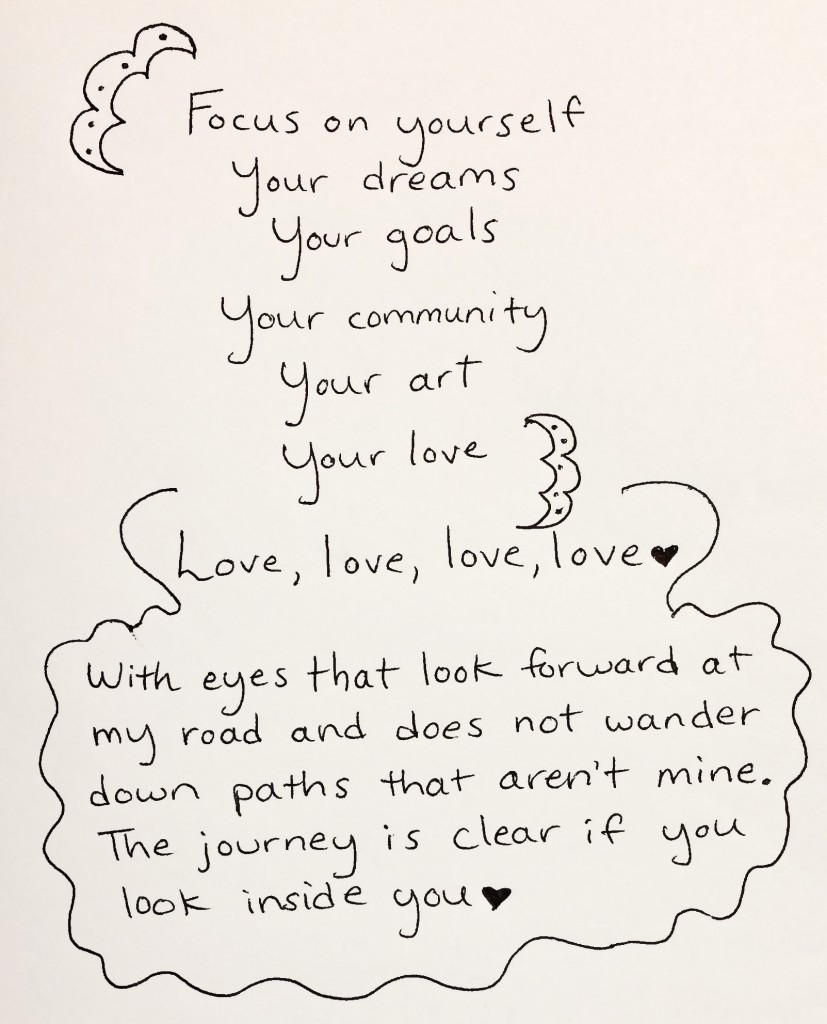 Focus on yourself
Your dreams
Your goals
Your community
Your art
Your love
Love, love, love, love♥
With eyes that look forward at
my road and does not wander
down paths that aren't mine.
The journey is clear if you
look inside you♥